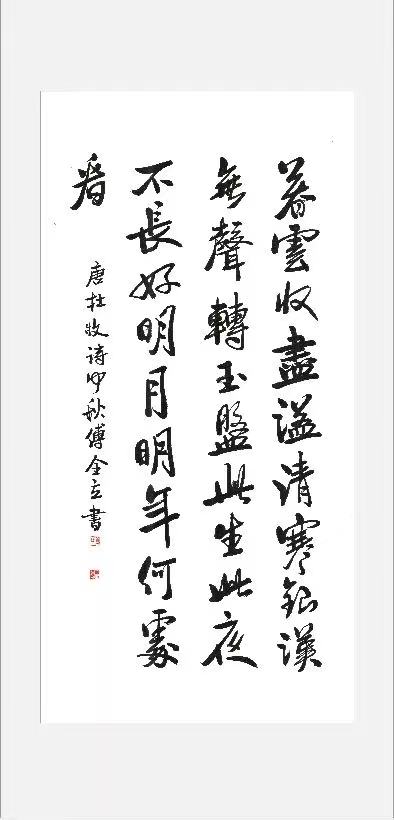 暮雲收盡溢清寒銀漢
無聲轉玉盤此生此夜
不長好明月明年何處
看
唐杜牧诗 秋傅全立書